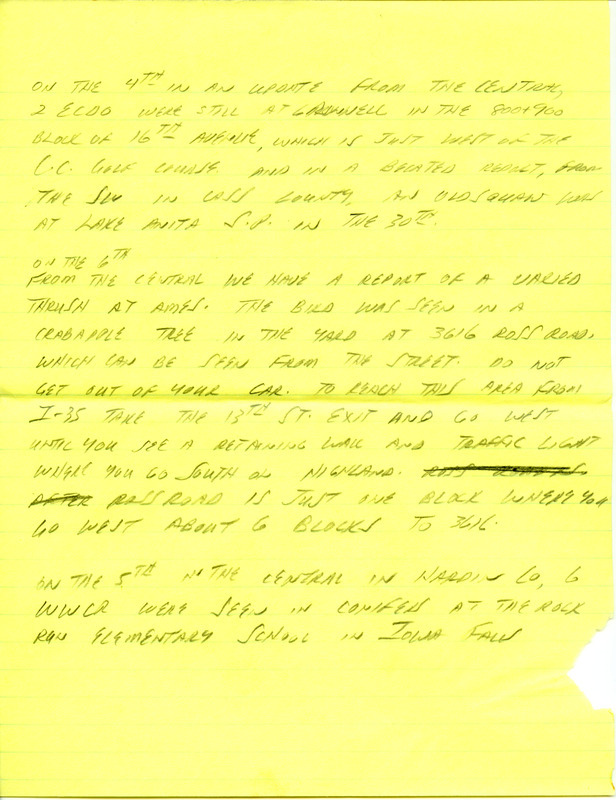 ON THE 4TH IN AN UPDATE FROM THE CENTRAL,
2 ECDO WERE STILL AT GRINNELL IN THE 800+900
BLOCK OF 16TH AVENUE, WHICH IS JUST WEST OF THE
C.C. GOLF COURSE AND IN A BELATED REPORT, FROM
THE SW IN CASS COUNTY, AN OLDSQUAW WAS
AT LAKE ANITA S.P. ON THE 30TH.
ON THE 6TH
FROM THE CENTRAL WE HAVE A REPORT OF A VARIED
THRUSH AT AMES. THE BIRD WAS SEEN IN A
CRABAPPLE TREE IN THE YARD AT 3616 ROSS ROAD,
WHICH CAN BE SEEN FROM THE STREET. DO NOT
GET OUT OF YOUR CAR. TO REACH THIS AREA FROM
I-35 TAKE THE 13TH ST. EXIT AND GO WEST
UNTIL YOU SEE A RETAINING WALL AND TRAFFIC LIGHT
WHERE YOU GO SOUTH ON HIGHLAND. ROSS ROAD IS
AFTER ROSS ROAD IS JUST ONE BLOCK WHERE YOU
GO WEST ABOUT 6 BLOCKS TO 3616.
ON THE 5TH IN THE CENTRAL IN HARDIN CO, 6
WWCR WERE SEEN IN CONIFERS AT THE ROCK
RUN ELEMENTARY SCHOOL IN IOWA FALLS